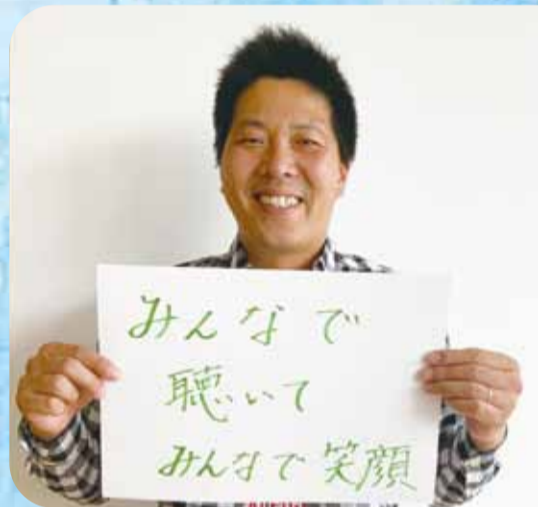 みんなで
聴いて
みんなで笑顔